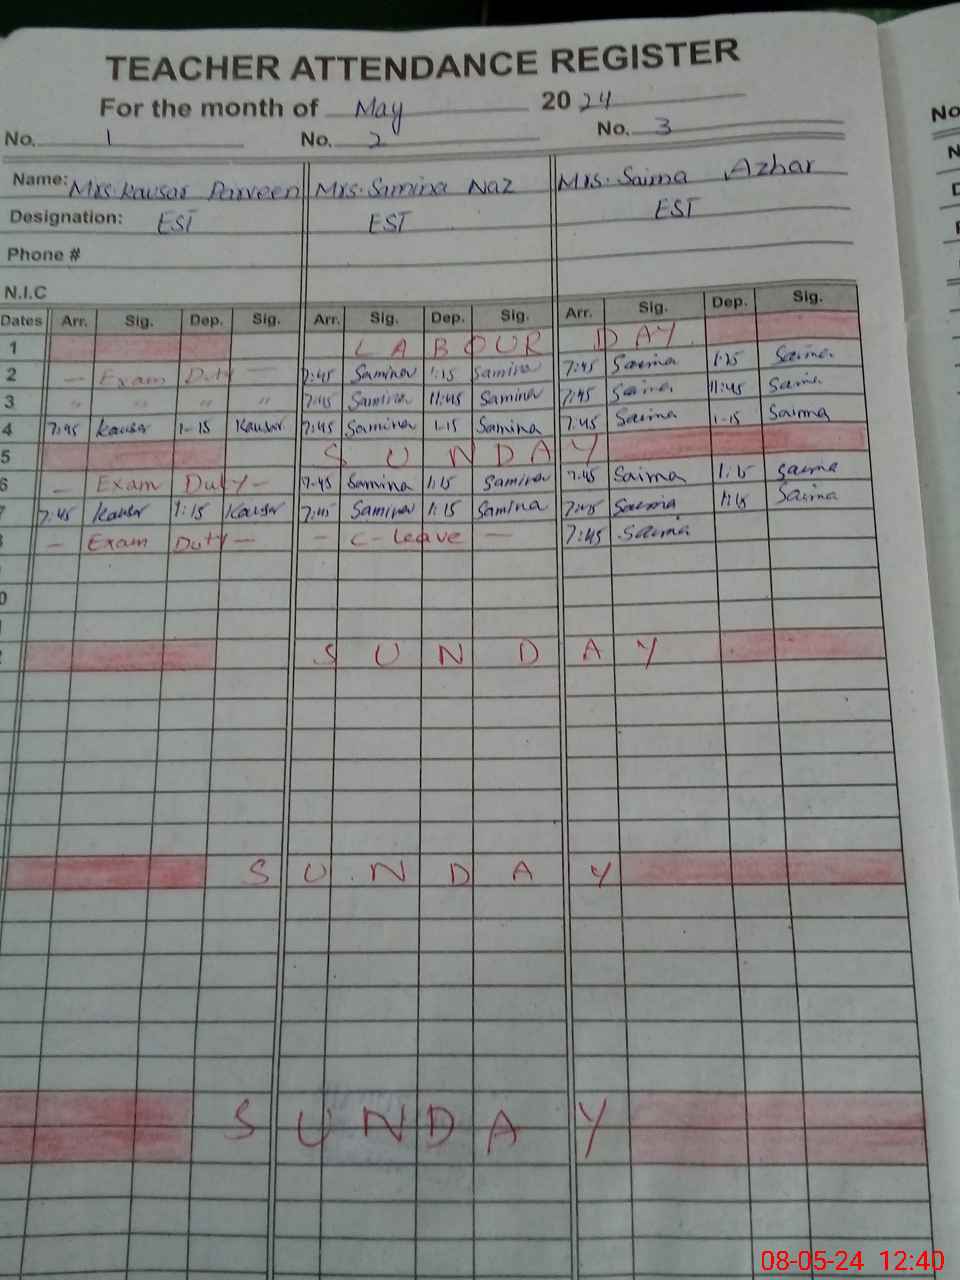 TEACHER ATTENDANCE REGISTER
For the month of May 2024
No. 1 No. 2 No. 3
No
Name: Mrs. Kausar Parveen Mrs. Samina Naz Mrs. Saima Azhar
Designation: EST EST EST
Phone #
N.I.C
Dates Arr. Sig. Dep. Sig. Arr. Sig. Dep. Sig. Arr. Sig. Dep. Sig.
1 LABOUR DAY
2 — Exam Duty — 7:45 Samina 1:15 Samina 7:45 Saima 1:15 Saima
3 " " " " 7:45 Samina 11:45 Samina 7:45 Saima 11:45 Saima
4 7:45 Kausar 1-15 Kausar 7:45 Samina 1-15 Samina 7:45 Saima 1-15 Saima
5 SUNDAY
6 — Exam Duty — 7:45 Samina 1:15 Samina 7:45 Saima 1:15 Saima
7:45 Kausar 1:15 Kausar 7:45 Samina 1:15 Samina 7:45 Saima 1:15 Saima
— Exam Duty — — C-leave — 7:45 Saima
0
SUNDAY
SUNDAY
SUNDAY
08-05-24 12:40